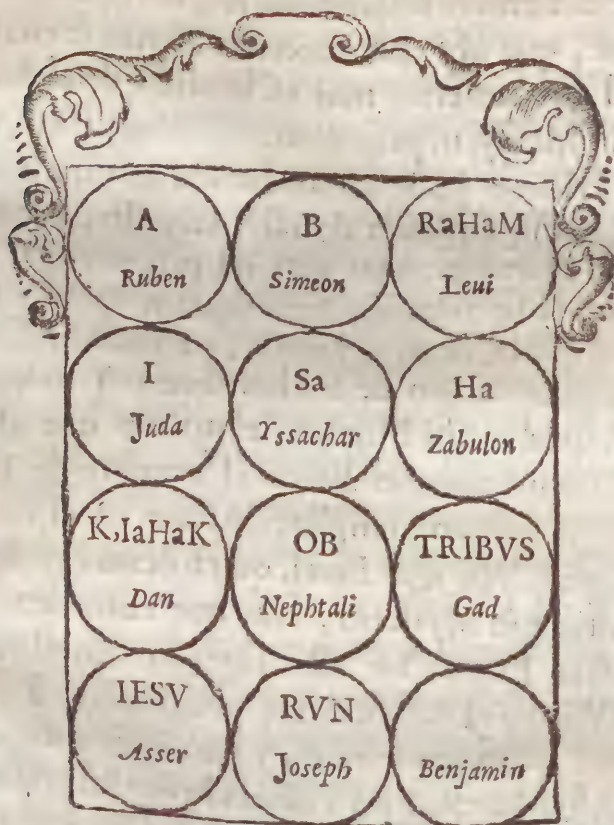 A
Ruben
B
Simeon
RaHaM
Leui
I
Juda
Sa
Yssachar
Ha
Zabulon
K,IaHaK
Dan
OB
Nephtali
TRIBVS
Gad
IESV
Asser
RVN
Joseph
Benjamin